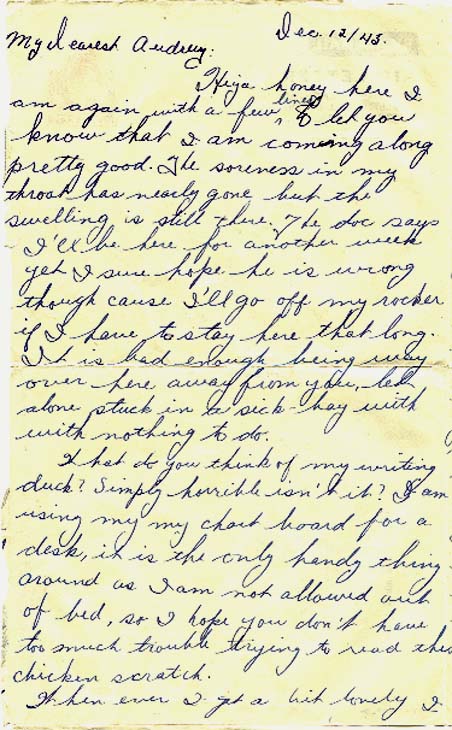 Dec 12/43.
My Dearest Audrey:
Hiya honey here I
am again with a few lines to let you
know that I am coming along
pretty good. The soreness in my
throat has nearly gone but the
swelling is still there. The doc says
I'll be here for another week
yet I sure hope he is wrong
though cause I'll go off my rocker
if I have to stay here that long.
It is bad enough being way
over here away from you, let
alone stuck in a sick-bay with
with nothing to do.
What do you think of my writing
duck? Simply horrible isn't it? I am
using my my chart board for a
desk, it is the only handy thing
around as I am not allowed out
of bed, so I hope you don't have
too much trouble trying to read this
chicken scratch.
When ever I get a bit lonely I